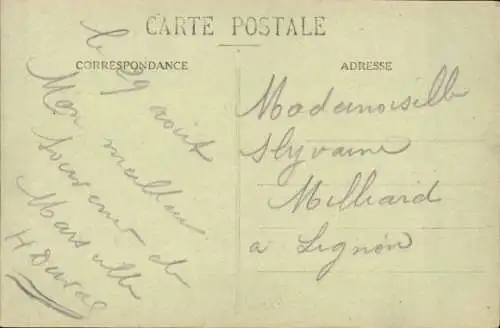 CARTE POSTALE
CORRESPONDANCE
le 29 août
Mon meilleur
Souvenir de
Marseille
H Durac
ADRESSE
Mademoiselle
Slyvaine
Milliard
a Lignon